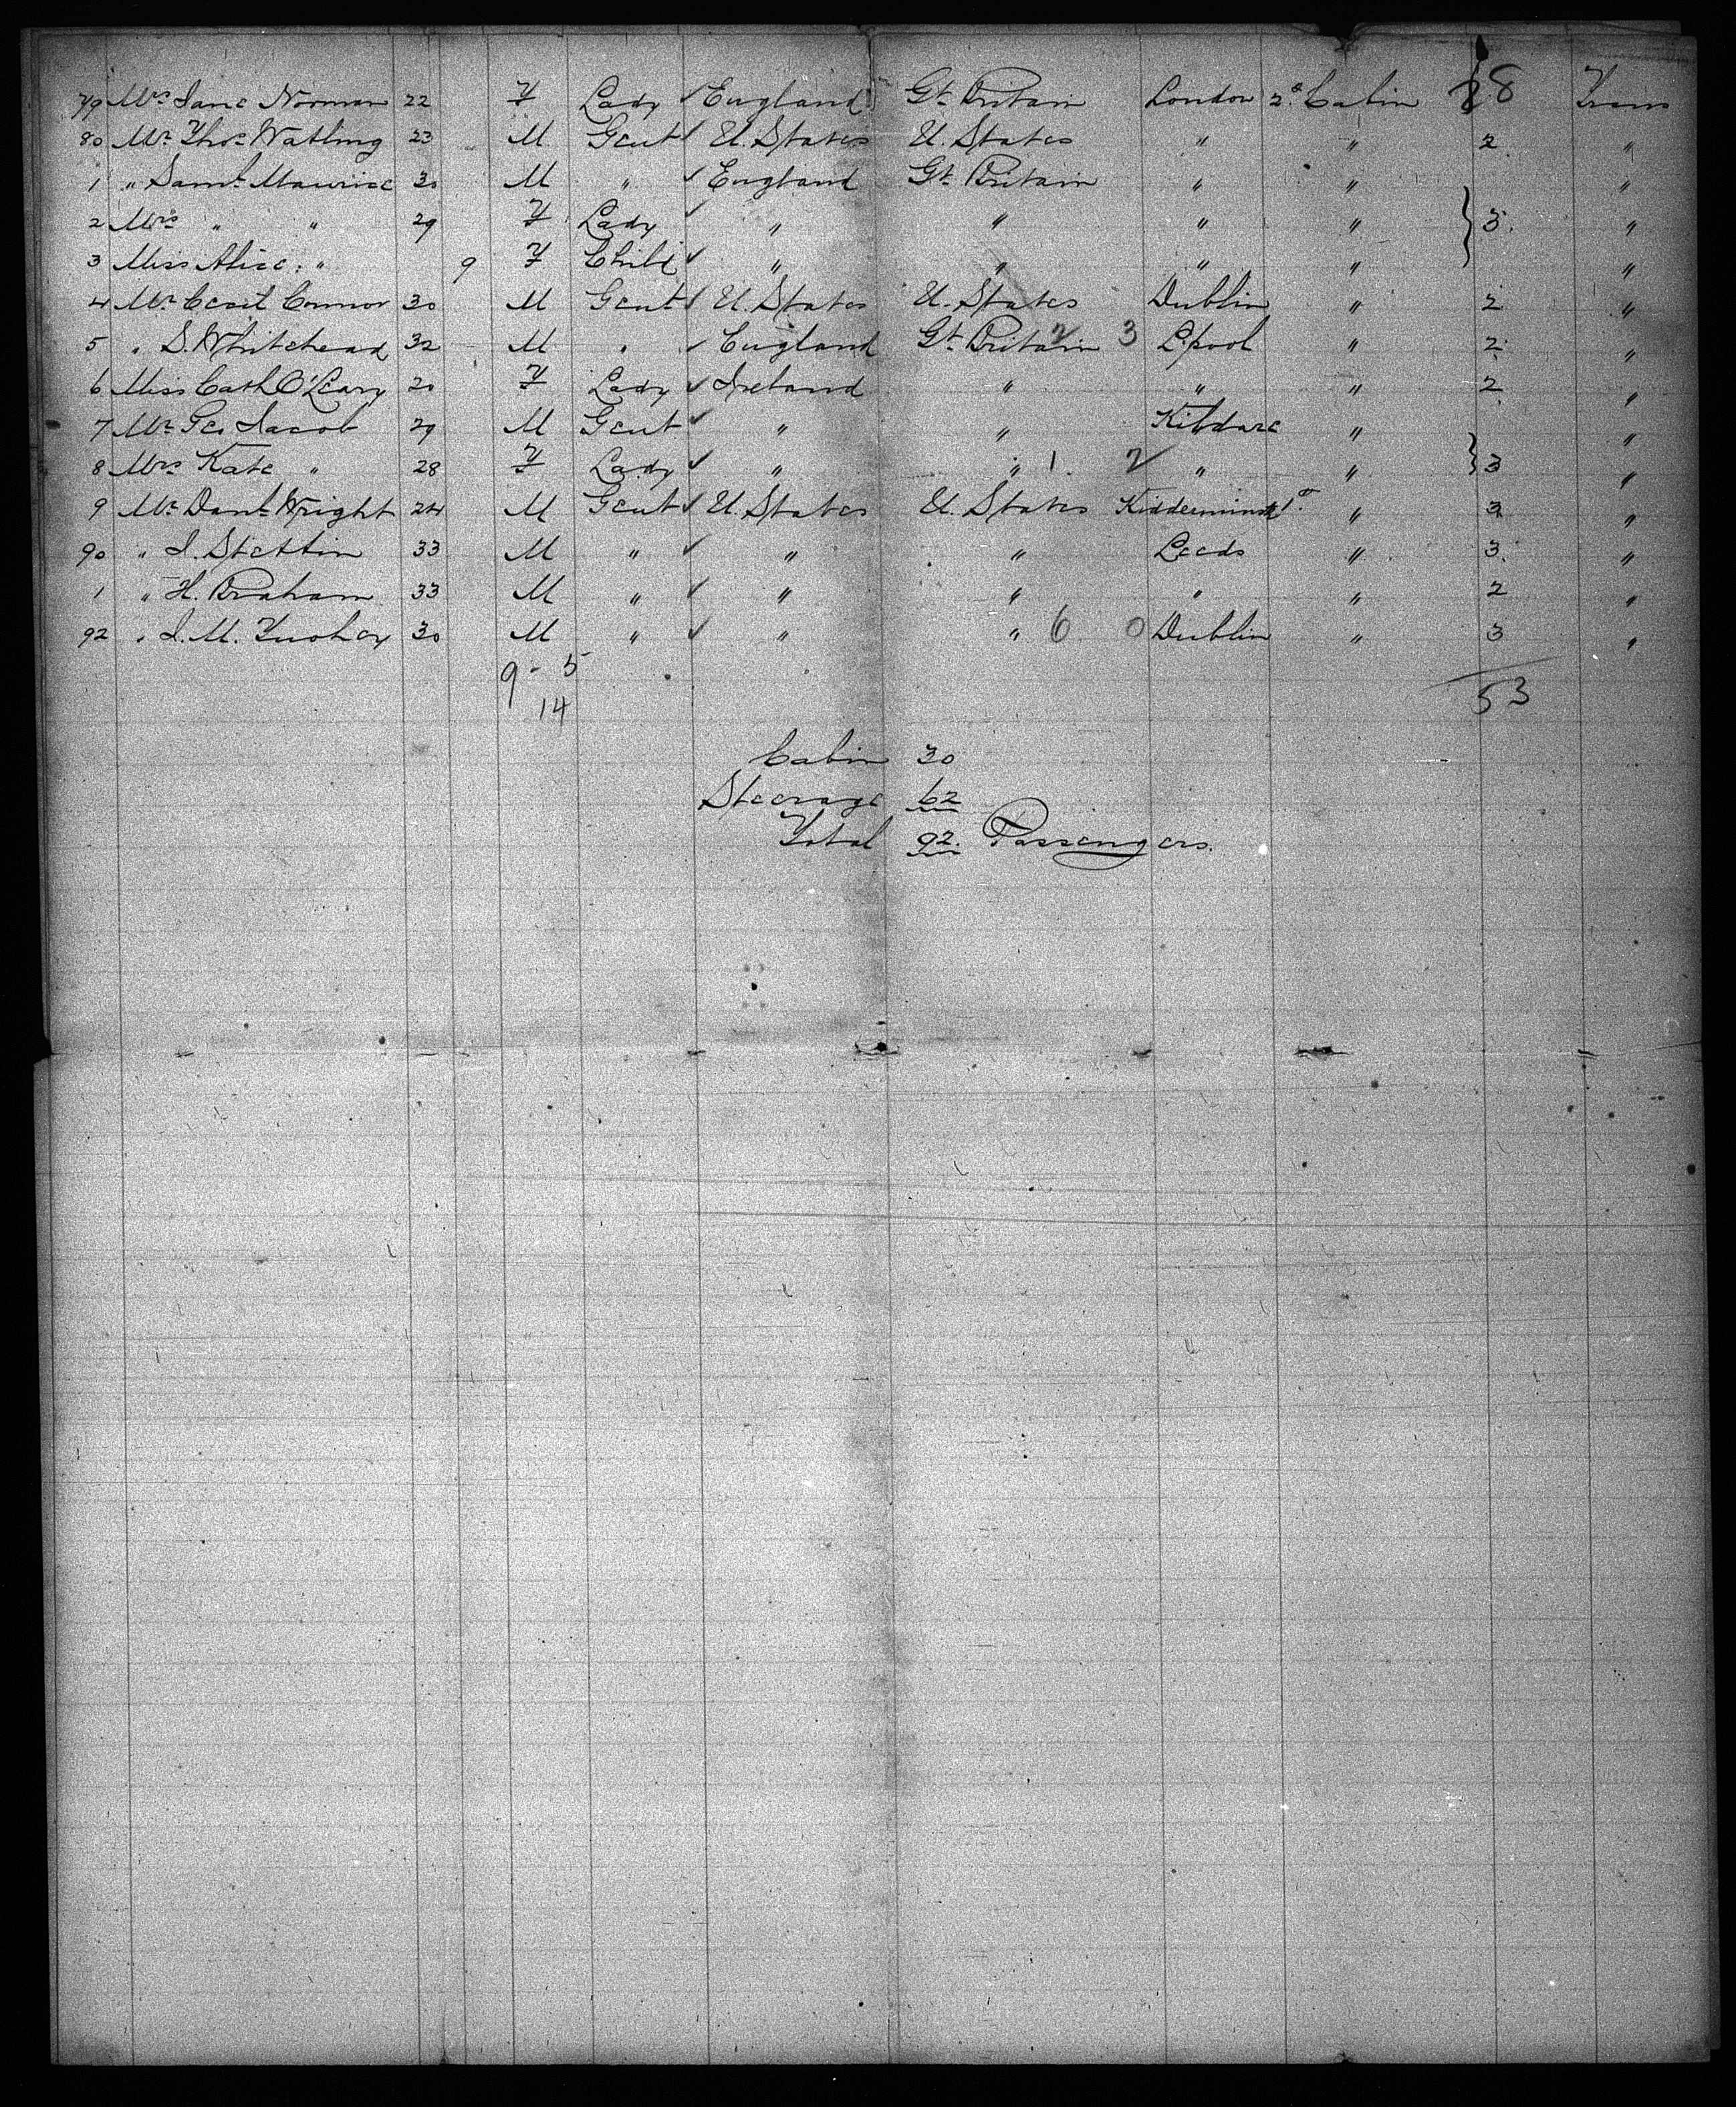 79 Mrs Jane Norman 22 F Lady ✓ England Gt. Britain London 2d Cabin 28 Trans
80 Mr. Thos Watling 23 M Gent ✓ U. States U. States " " 2 "
1 " Saml. Maurice 30 M " ✓ England Gt. Britain " " "
2 Mrs " " 29 F Lady ✓ " " " " } 3. "
3 Miss Alice " 9 F Child ✓ " " " " "
4 Mr. Cecil Connor 30 M Gent ✓ U. States U. States Dublin " 2 "
5 " S. Whitehead 32 M " ✓ England Gt. Britain 2 3 L'pool " 2 "
6 Miss Cath O'Leary 20 F Lady ✓ Ireland " " " 2 "
7 Mr. Geo Jacob 29 M Gent ✓ " " Kildare " "
8 Mrs Kate " 28 F Lady ✓ " " 1. 2 " " } 3 "
9 Mr. Danl. Wright 24 M Gent ✓ U. States U. States Kidderminstr. " 3 "
90 " J. Stettin 33 M " ✓ " " Leeds " 3 "
1 " H. Braham 33 M " ✓ " " " " 2 "
92 " J. M. 30 M " ✓ " " 6 0 Dublin " 3 "
9 - 5
14
53
Cabin 30
Steerage 62
Total 92. Passengers.